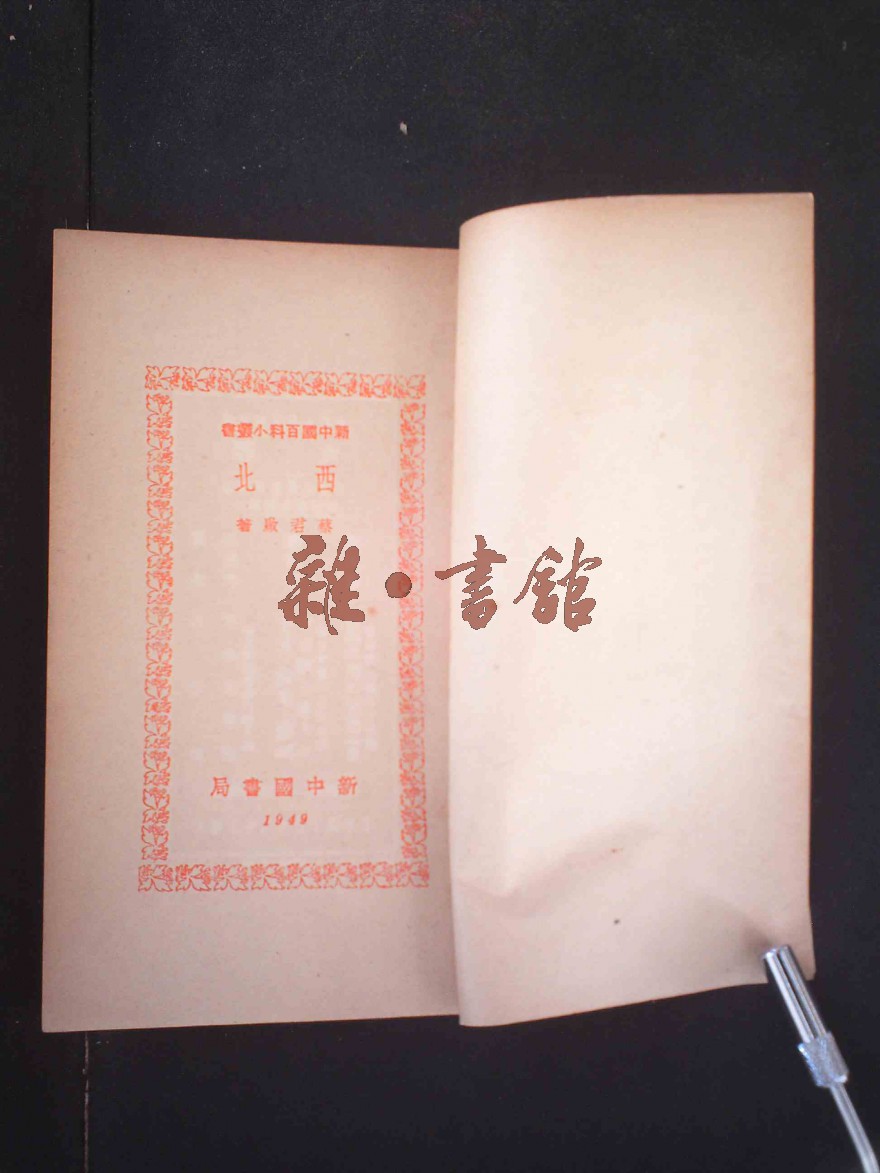 新中國百科小叢書
西北
蔡君啟著
雜·書館
新中國書局
1949